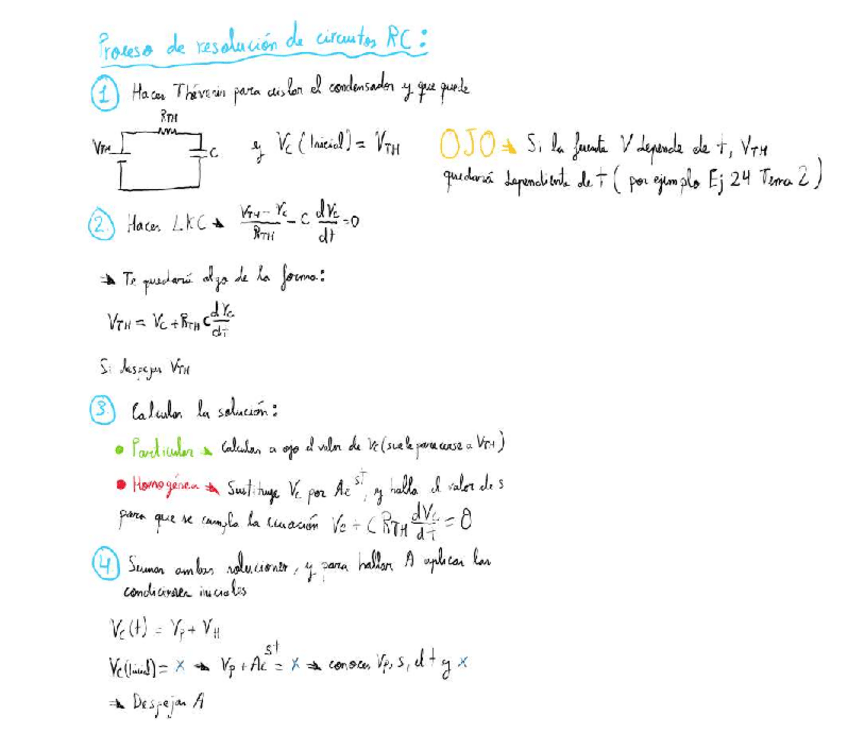 Proceso de resolución de circuitos RC:
1 Hacer Thévenin para aislar el condensador y que quede
R_TH
V_TH
C
y V_C (Inicial) = V_TH
OJO → Si la fuente V depende de t, V_TH
quedará dependiente de t (por ejemplo Ej 24 Tema 2)
2. Hacer LKC → (V_TH - V_C)/R_TH - C dV_C/dt = 0
→ Te quedará algo de la forma:
V_TH = V_C + R_TH C dV_C/dt
Si despejas V_TH
3. Calcular la solución:
• Particular → Calculas a ojo el valor de V_C (suele parecerse a V_TH)
• Homogénea → Sustituye V_C por Ae^st, y halla el valor de s
para que se cumpla la ecuación V_C + C R_TH dV_C/dt = 0
4 Sumar ambas soluciones, y para hallar A aplicar las
condiciones iniciales
V_C(t) = V_P + V_H
V_C(Inicial) = x → V_P + Ae^st = x → conoces V_P, s, el t y x
→ Despejar A